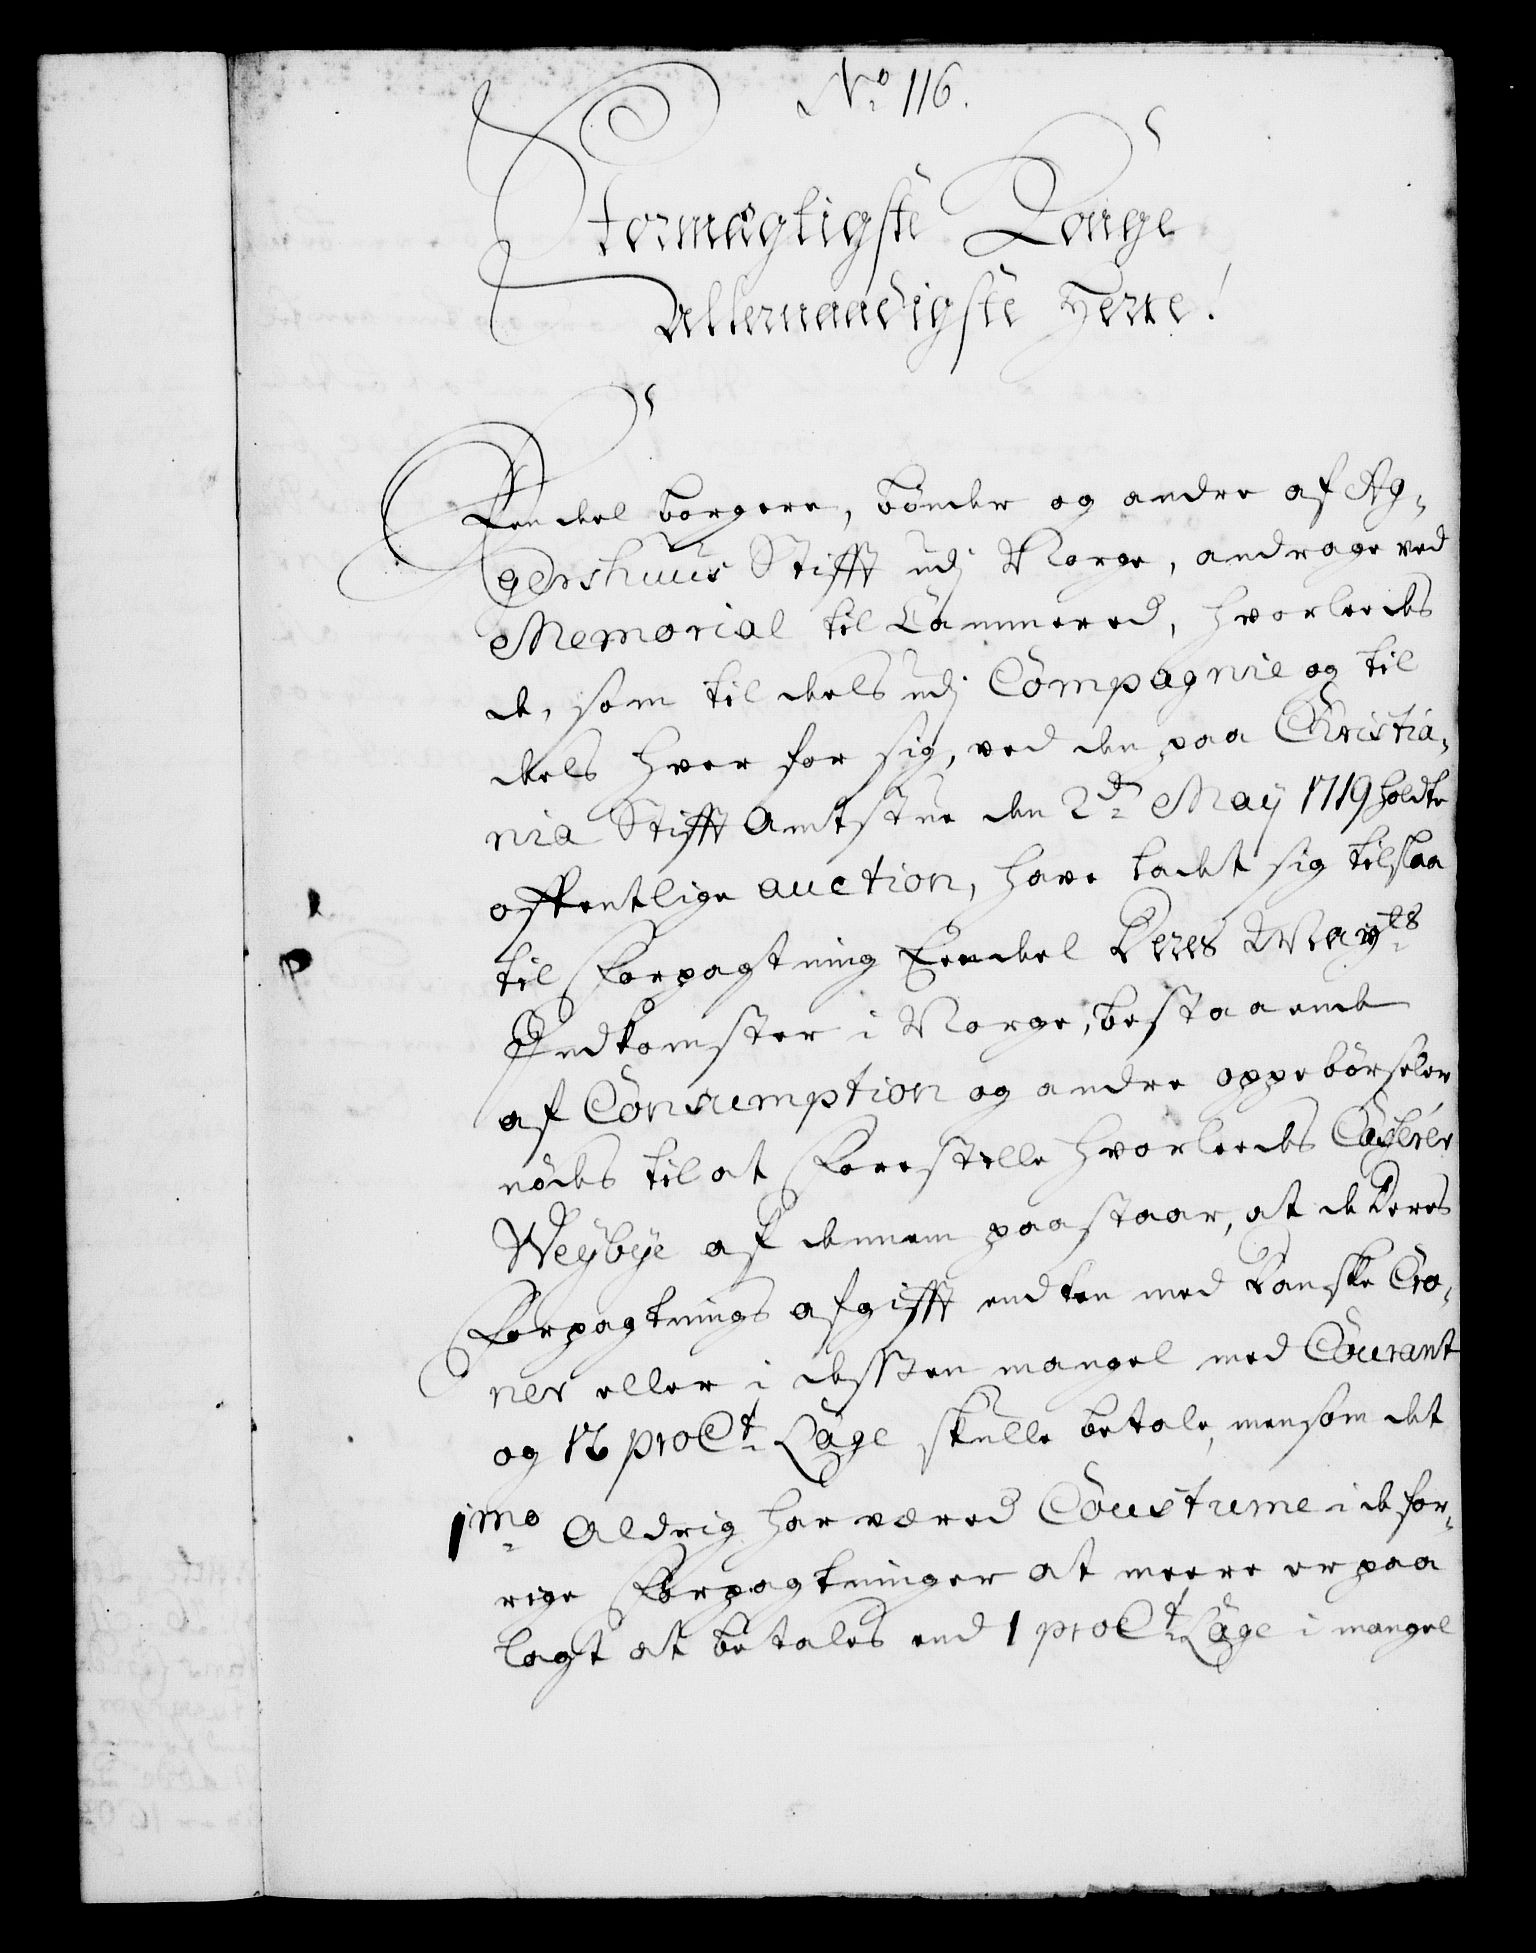 No 116.
Stormægtigste Konge
Allernaadigste Herre!
Een deel borgere, bønder og andre af Ag-
gershuus Stifft udj Norge, andrage ved
Memorial til Cammered, hvorleedes
de, som til deels udj Compagnie og til
deels hver for sig, ved den paa Christia-
nia Stifft Amtstue den 2den May 1719 holdte
offentlige auction, have ladet sig tilslaa
til Forpagtning Een deel Deres Mayts
Indkomster i Norge, bestaaende
af Consumption og andre oppebørseler
nødes til at Forestille hvorleedes Casserer
Weybye af dennem paastaar, at de Deres
Forpagtnings afgifft endten med Danske Cro-
ner eller i dessen mangel med Courant
og 12 pro Ct Lage skulle betale, mensom det
1mo Aldrig har været Coustume i de for-
rige Forpagtninger at meere er paa
lagt at betales end 1 pro Ct Lage i mangel